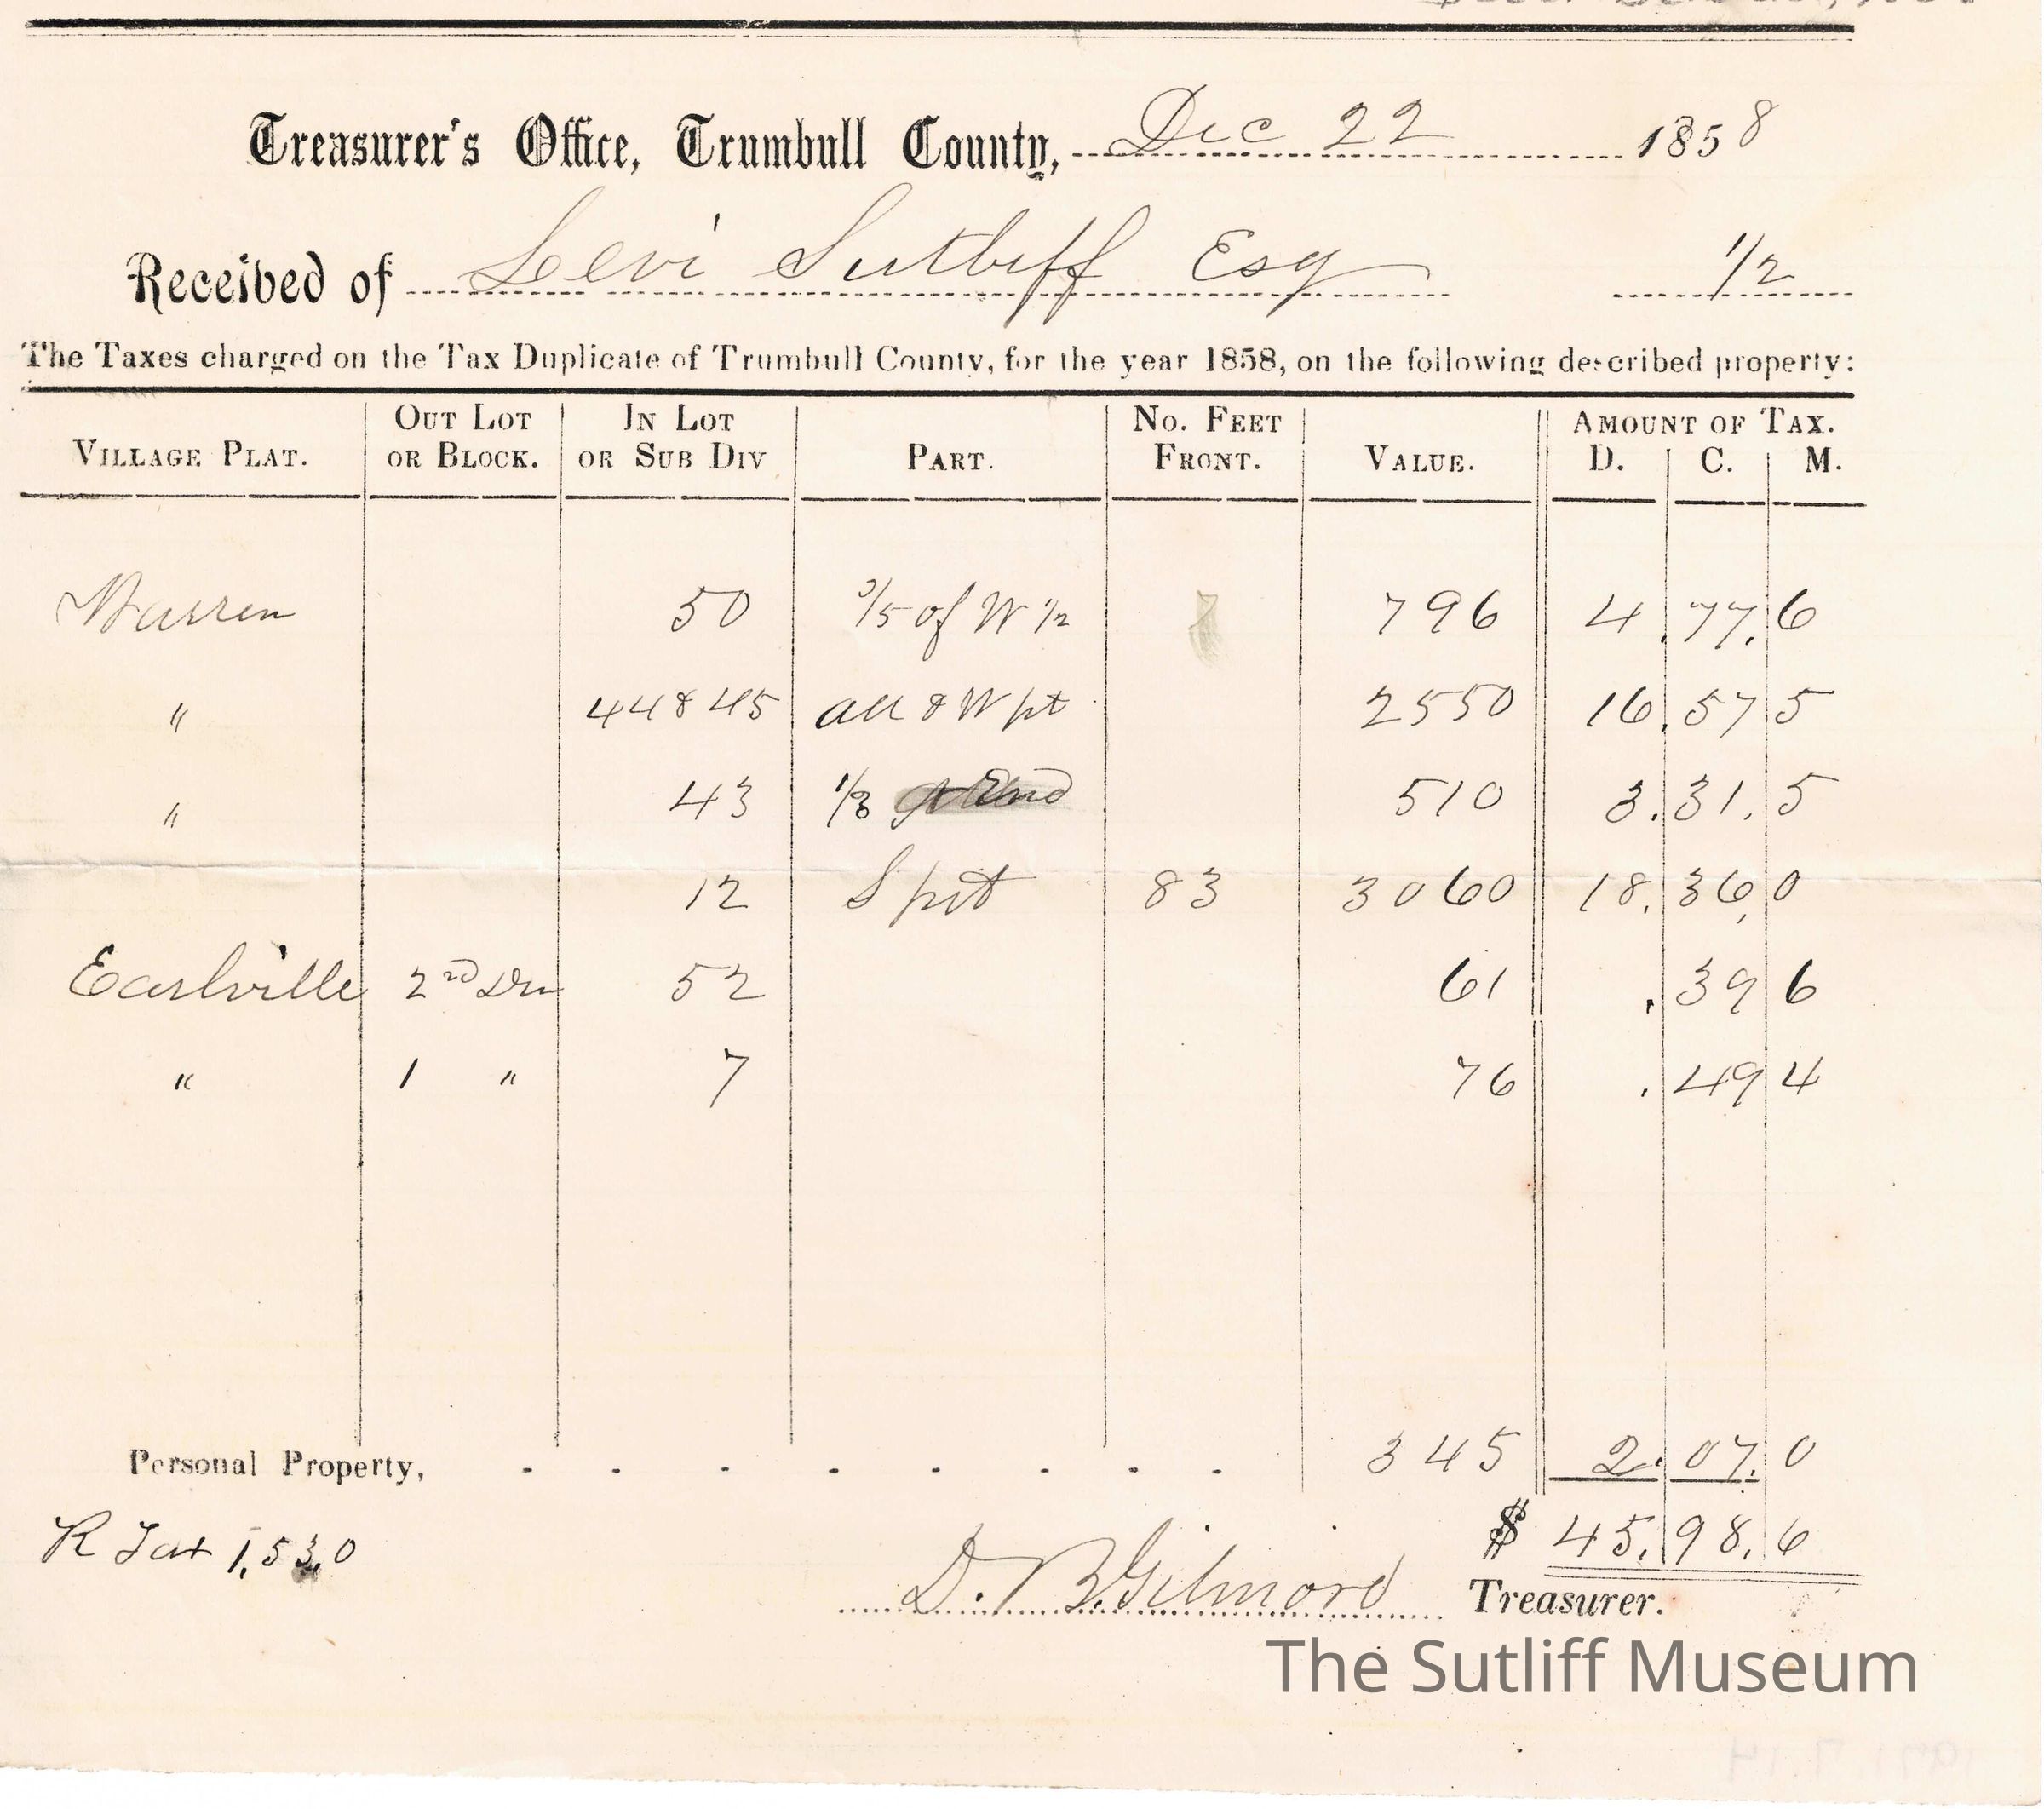 Treasurer's Office, Trumbull County, Dec 22 1858
Received of Levi Sutliff Esq 1/2
The Taxes charged on the Tax Duplicate of Trumbull County, for the year 1858, on the following described property:
VILLAGE PLAT. OUT LOT OR BLOCK. IN LOT OR SUB DIV PART. NO. FEET FRONT. VALUE. AMOUNT OF TAX. D. C. M.
Warren 50 3/5 of W 1/2 796 4.77.6
" 44 & 45 all & W pt 2550 16.57 5
" 43 1/3 510 3.31.5
12 S prt 83 3060 18.36,0
Earlville 2nd Div 52 61 .39 6
" 1 " 7 76 .49 4
Personal Property, 345 2.07.0
R Tax 1,53,0 $ 45.98.6
D. B. Gilmore Treasurer.
The Sutliff Museum